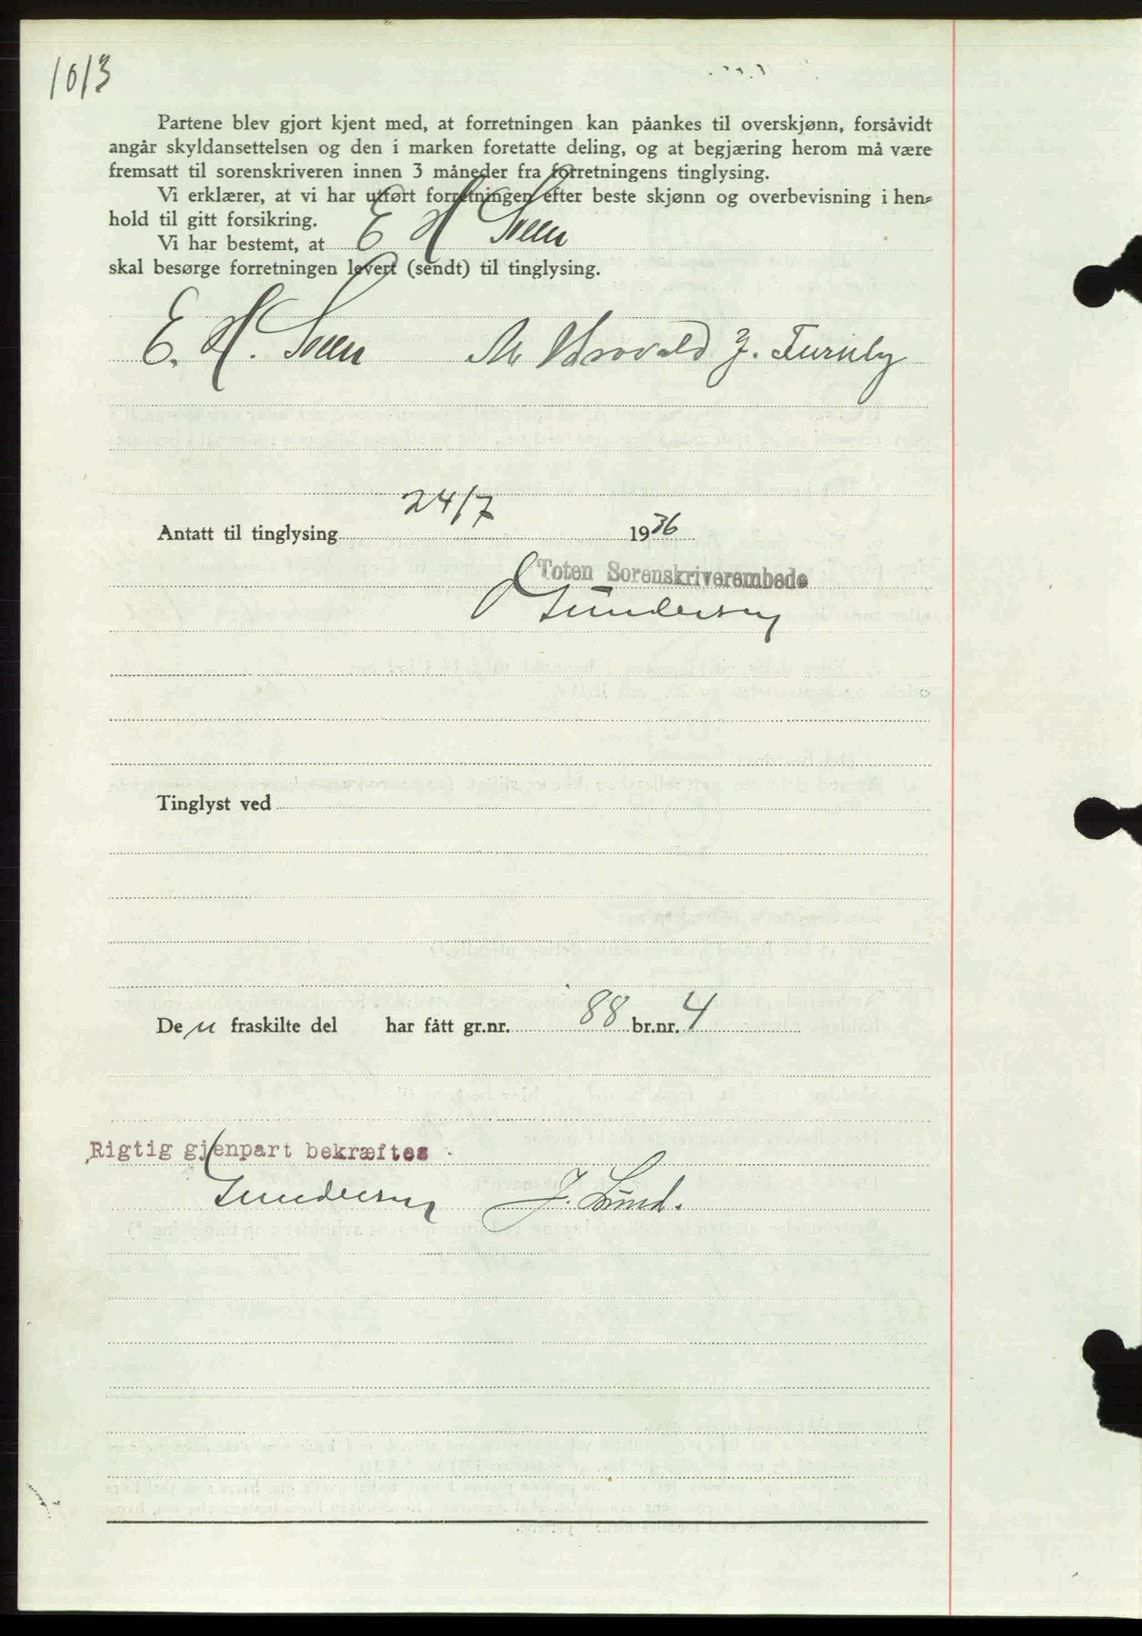 1013
Partene blev gjort kjent med, at forretningen kan påankes til overskjønn, forsåvidt
angår skyldansettelsen og den i marken foretatte deling, og at begjæring herom må være
fremsatt til sorenskriveren innen 3 måneder fra forretningens tinglysing.
Vi erklærer, at vi har utført forretningen efter beste skjønn og overbevisning i hen-
hold til gitt forsikring.
Vi har bestemt, at E H Sveen
skal besørge forretningen levert (sendt) til tinglysing.
E. H. Sveen J. Furuby
24/7
Antatt til tinglysing 1936
Toten Sorenskriverembede
Gundersen
Tinglyst ved
De n fraskilte del har fått gr.nr. 88 br.nr. 4
Rigtig gjenpart bekræftes
Gundersen J. Lund.